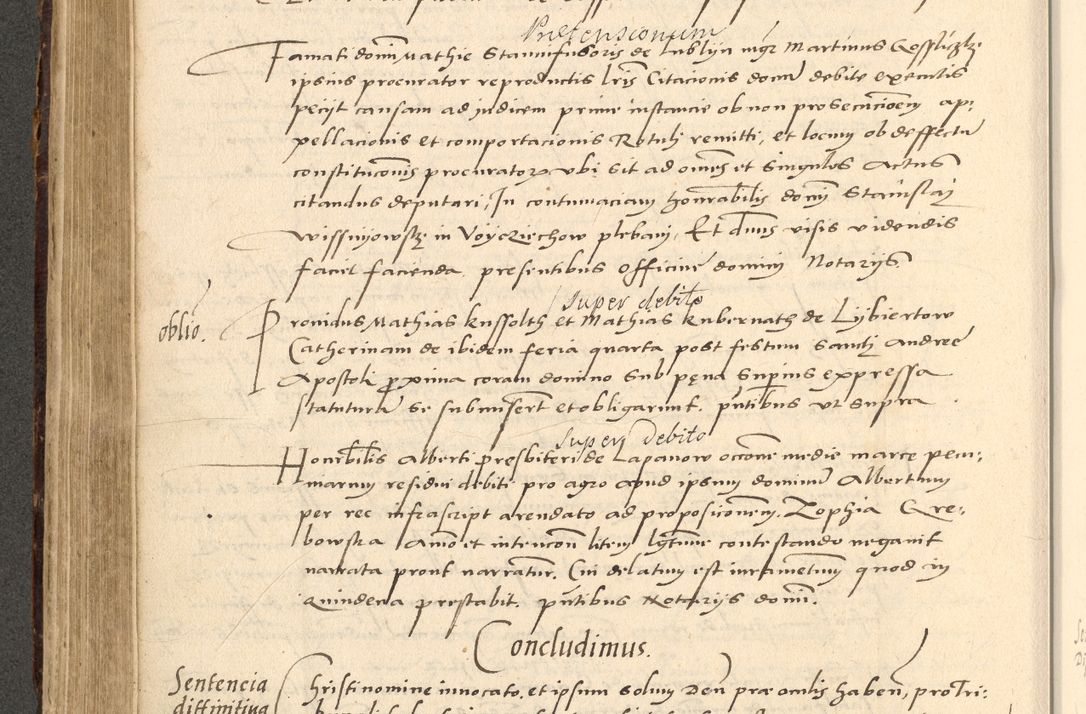 Pretensionum
Famati domini Mathie Stannifusoris de Lublijn mgr Martinus Gossliczki
ipsius procurator reproductis lris Citacionis domi debite executis
peciit causam ad judicem prime instancie ob non prosecucionem ap:
pellacionis et comportacionis Rotuli remitti, et locum ob deffectu
constituconis procurator ubi sit ad omes et singulos Actus
citandus deputari, In contumaciam honorabilis domi Stanislai
Wissnijowski in Voyciechow plebani, Et dnus visis videndis
faciet facienda presentibus officine domini Notarijs.
super debito
oblio. Providus Mathias Kussolth et Mathias Kubernath de Lijbiertow
Catherinam de ibidem feria quarta post festum Sancti Andree
Apostoli proxima coram domino sub pęna superius expressa
statutura se submisert et obligarunt. pntibus ut supra.
super debito
Honrbilis Alberti presbiteri de Lapanow occone medie marce pecu:
niarum residui debiti pro agro apud ipsum dominum Albertum
per rec infrascript arendato ad proposicionem. Zophia Gre:
bowska Animo et intencon litem lgttime contestando negavit
narrata prout narratur. Cui delatum est iuramentum quod in
quindena prestabit. pntibus Notarijs domi.
Concludimus.
Sentencia
diffinitiva
Christi nomine invocato, et ipsum solum Deum præ oculis haben, pro Tri: